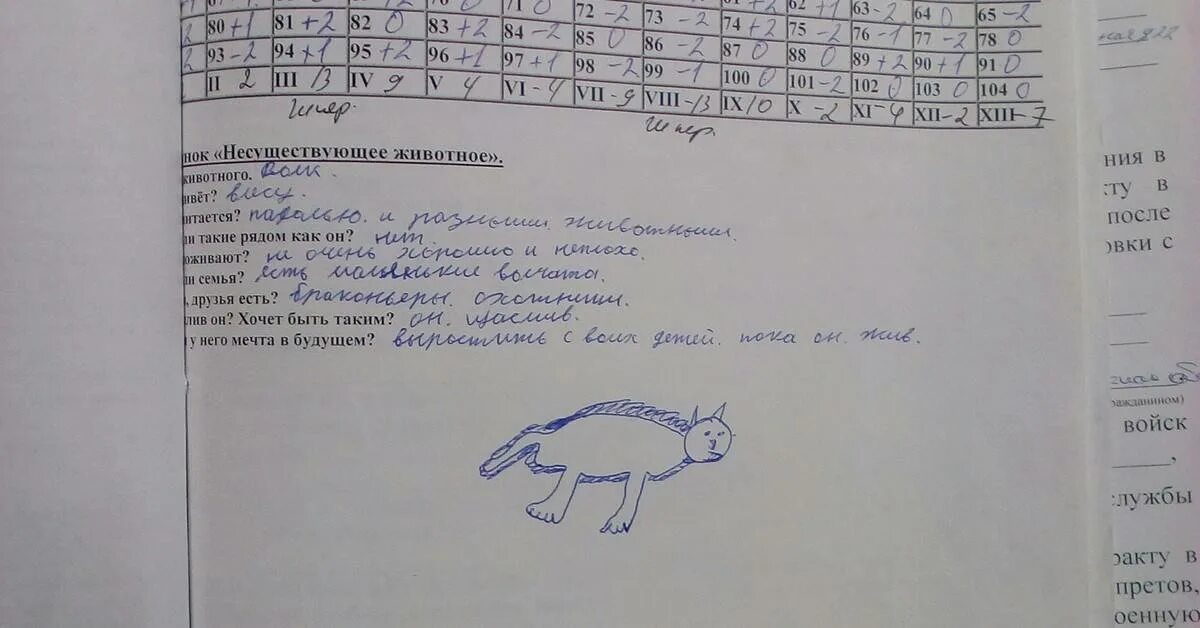 62 +1 63 -2 64 0 65 -2
71 0 72 -2 73 -2 74 +2 75 -2 76 -1 77 -2 78 0
80 +1 81 +2 82 0 83 +2 84 -2 85 0 86 -2 87 0 88 0 89 +2 90 +1 91 0
93 -2 94 +1 95 +2 96 +1 97 +1 98 -2 99 -1 100 0 101 -2 102 0 103 0 104 0
II 2 III 13 IV 9 V 4 VI -4 VII -9 VIII -13 IX 10 X -2 XI -4 XII -2 XIII -7
нок «Несуществующее животное».
животного. Волк.
ивёт? влесу.
итается? падалью. и разными животными.
ли такие рядом как он? нет.
оживают? не очень хорошо и неплохо.
ли семья? есть маленькие волчата.
, друзья есть? браконьеры. охотники.
лив он? Хочет быть таким? он. щаслив.
у него мечта в будущем? выростить с воих детей. пока он. жив.
ния в
ту в
после
овки с
ражданином)
войск
службы
ракту в
претов,
оенную